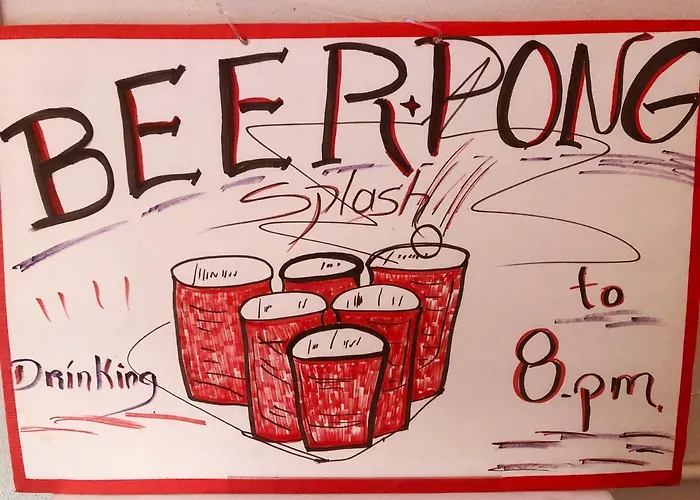 BEER PONG
Splash
to
Drinking
8.pm.